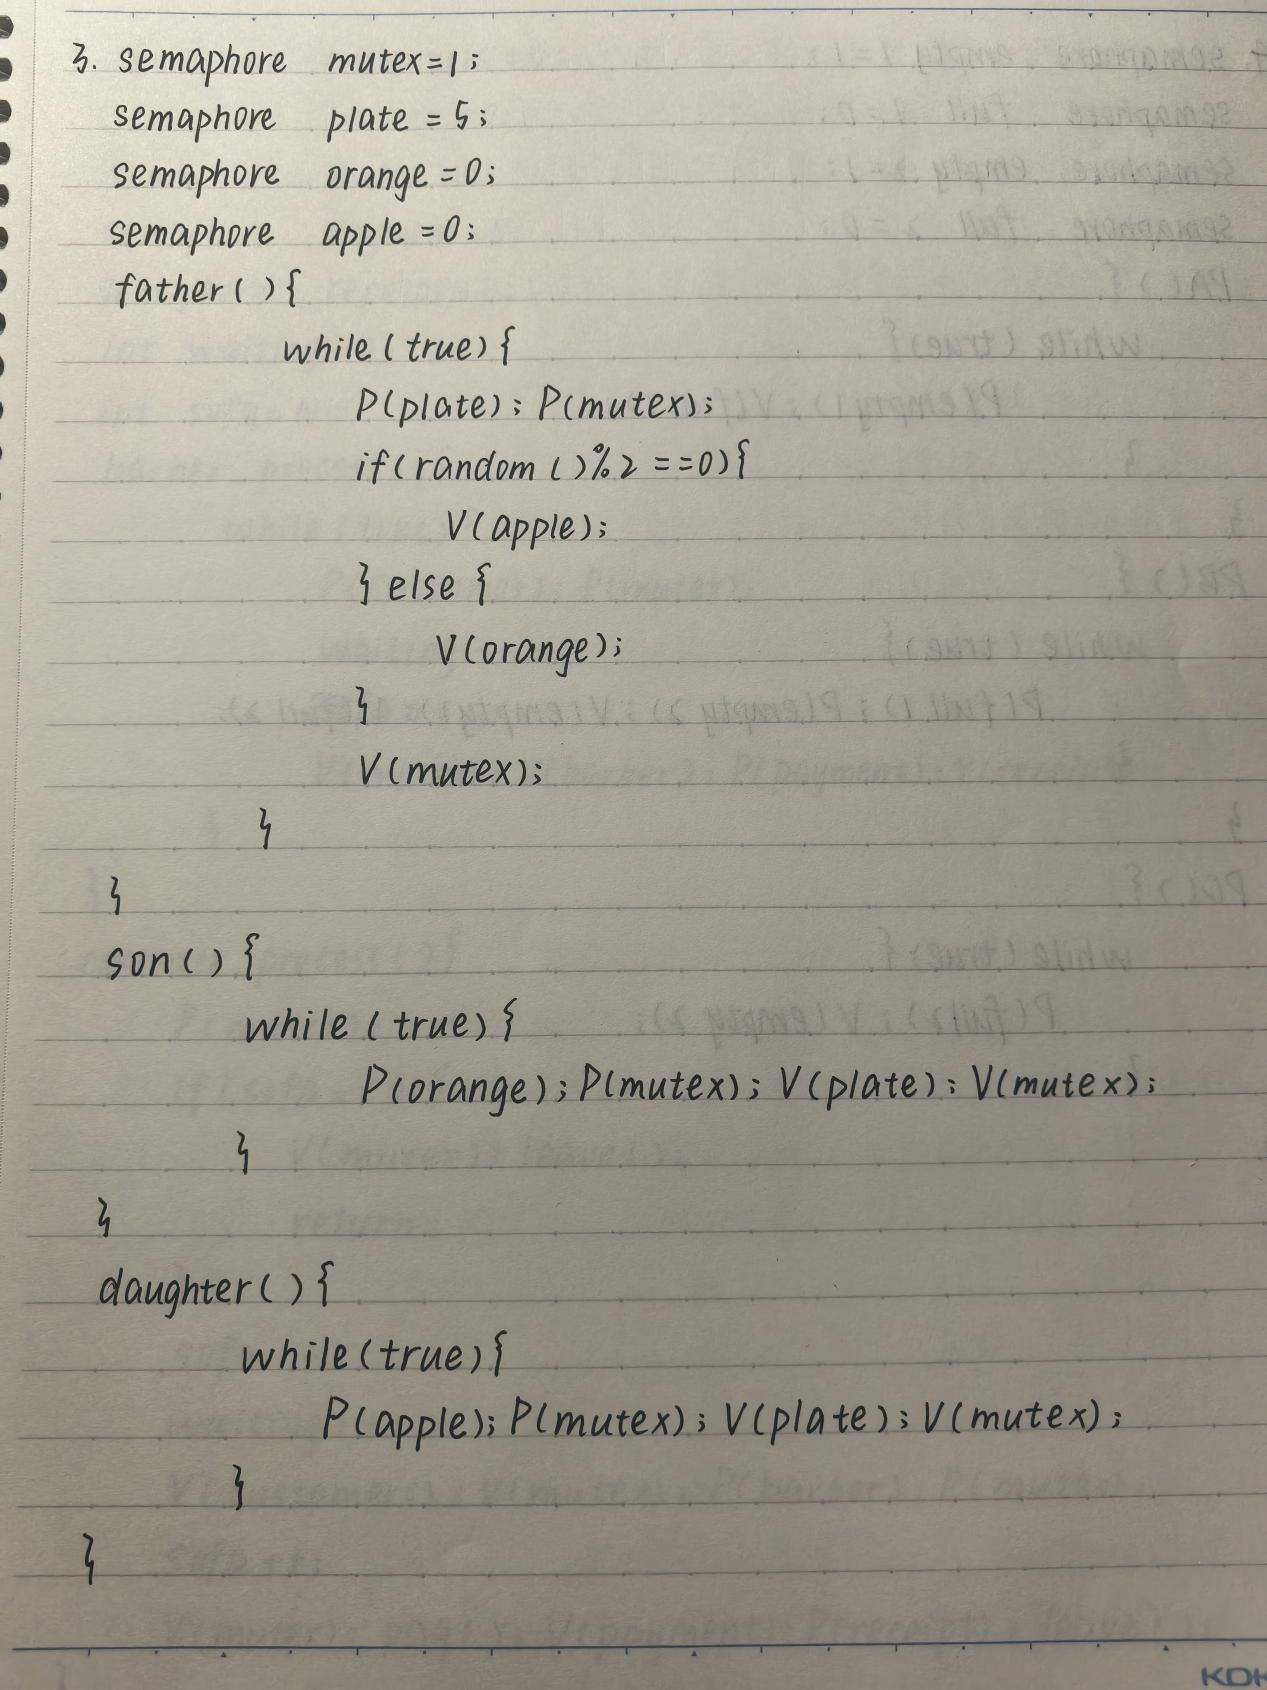 3. semaphore mutex=1;
semaphore plate = 5;
semaphore orange = 0;
semaphore apple = 0;
father( ){
while (true) {
P(plate); P(mutex);
if(random ()%2 ==0){
V(apple);
} else {
V(orange);
}
V(mutex);
}
}
son() {
while (true) {
P(orange); P(mutex); V(plate); V(mutex);
}
}
daughter( ) {
while (true) {
P(apple); P(mutex); V(plate); V(mutex);
}
}